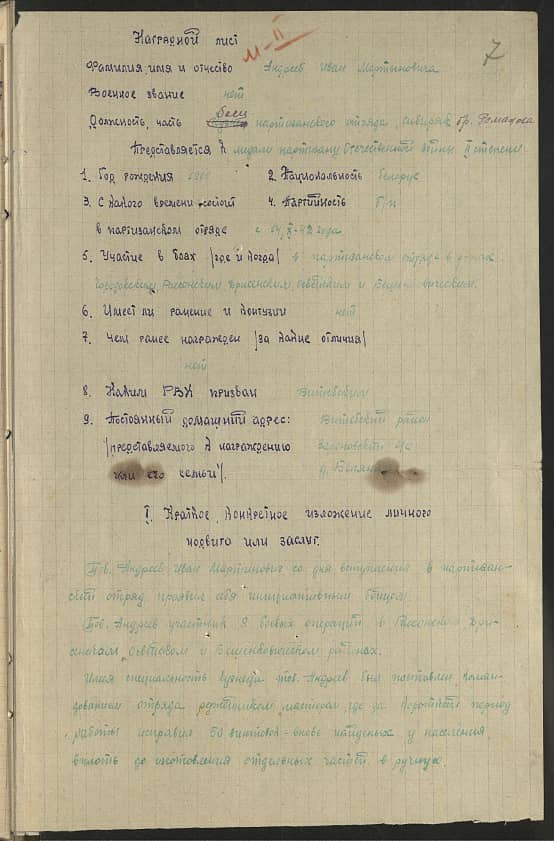 Наградной лист
М-II
7
Фамилия, имя и отчество Андреев Иван Мартынович
Военное звание нет
Должность, часть боец партизанского отряда "Сибиряк" бр. Романова
Представляется к медали партизану Отечественной войны II степени
1. Год рождения 2. Национальность белорус
3. С какого времени состоит 4. Партийность б/п
в партизанском отряде с 14.XI-42 года
5. Участие в боях /где и когда/ в партизанском отряде в р-нах
Городокским, Россонским, Дриссенским, Освейским и Бешенковическом.
6. Имеет ли ранение и контузии нет
7. Чем ранее награжден /за какие отличия/
нет
8. Каким РВК призван Витебским
9. Постоянный домашний адрес: Витебский район
/представляемого к награждению с/с
или его семьи/. д.
I. Краткое, конкретное изложение личного
подвига или заслуг.
Тов. Андреев Иван Мартинович со дня вступления в партизан-
ский отряд проявил себя инициативным бойцом.
Тов. Андреев участник 8 боевых операций в Россонском Дри-
сенском, Освейском и Бешенковическом районах.
Имея специальность слесаря тов. Андреев был поставлен коман-
дованием отряда ружейным мастером, где за короткий период
работы исправил 50 винтовок - вновь найденых у населения
вплоть до изготовления отдельных частей в ручную.